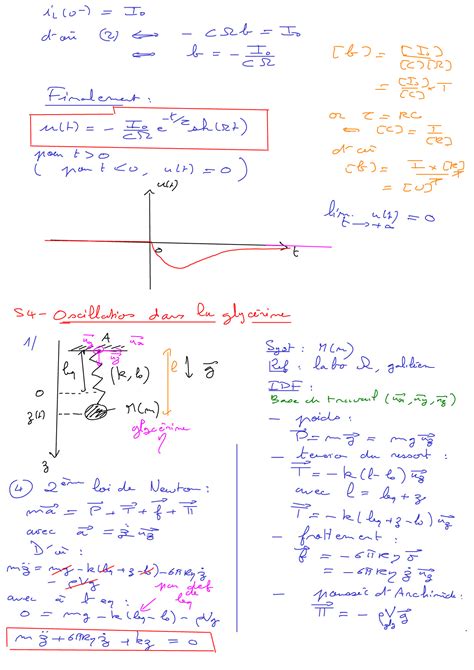 i_L(0-) = I_0
d'où (2) ⇔ - CΩb = I_0
⇔ b = - I_0/CΩ
[b] = [I_0]/[C][Ω]
= [I_0]/[C] . T
or τ = RC
⇔ [C] = T/[R]
d'où
[b] = I × [R]/T . T
= [U]
Finalement :
u(t) = - I_0/CΩ e^{-t/τ} sh(Ωt)
pour t > 0
( pour t < 0, u(t) = 0 )
lim u(t) = 0
t → +∞
u(t)
0
t
S4 - Oscillation dans la glycérine
1/
A
l_eq
(k, l_0)
l
g
0
z(t)
M(m)
glycérine
η
z
Syst : M(m)
Ref : labo R, galiléen
BDF :
Base de travail (ux, uy, uz)
- poids :
P = mg = mg uz
- tension du ressort :
T = - k(l - l_0) uz
avec l = l_eq + z
T = - k(l_eq + z - l_0) uz
- frottement :
f = - 6πRη v
= - 6πRη ż uz
- poussée d'Archimède :
Π = - ρVg
④ 2ème loi de Newton :
ma = P + T + f + Π
avec a = z̈ uz
D'où :
mz̈ = mg - k(l_eq + z - l_0) - 6πRη ż
- ρVg
par def de l_eq
avec à l'eq :
0 = mg - k(l_eq - l_0) - ρVg
m z̈ + 6πRη ż + kz = 0